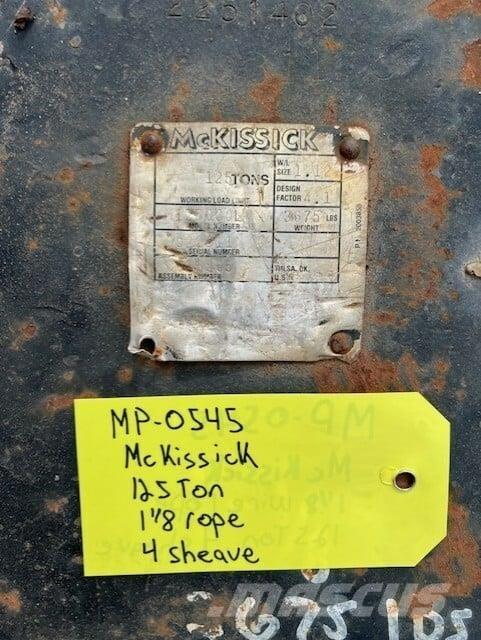 2251402
McKISSICK
125 TONS
WORKING LOAD LIMIT
W/L SIZE 1.12
DESIGN FACTOR 4.1
MODEL NUMBER
3675 LBS
WEIGHT
SERIAL NUMBER
ASSEMBLY NUMBER
TULSA, OK.
U.S.A.
MP-0545
McKissick
125 Ton
1 1/8 rope
4 sheave
MASCUS
675 lbs